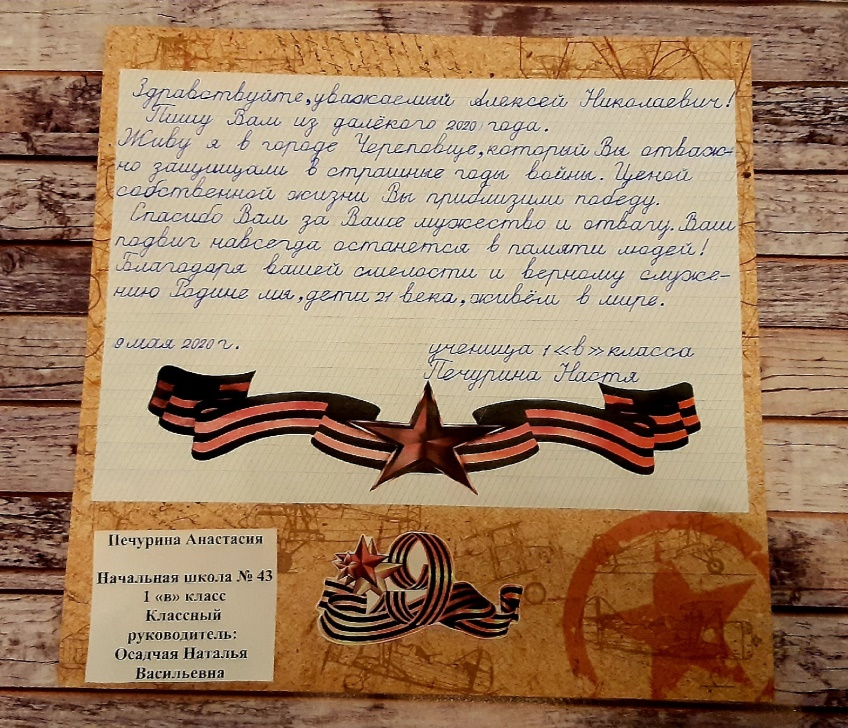 Здравствуйте, уважаемый Алексей Николаевич!
Пишу Вам из далёкого 2020 года.
Живу я в городе Череповце, который Вы отваж-
но защищали в страшные годы войны. Ценой
собственной жизни Вы приблизили победу.
Спасибо Вам за Ваше мужество и отвагу. Ваш
подвиг навсегда останется в памяти людей!
Благодаря вашей смелости и верному служе-
нию Родине мы, дети 21 века, живём в мире.
9 мая 2020 г.
ученица 1 «в» класса
Печурина Настя
Печурина Анастасия
Начальная школа № 43
1 «в» класс
Классный
руководитель:
Осадчая Наталья
Васильевна
9